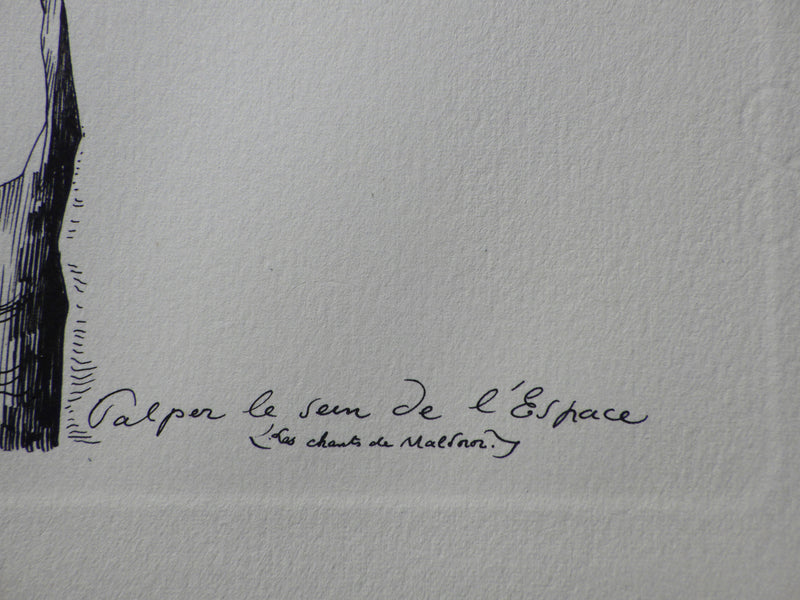 Palper le sein de l'Espace
(Les chants de Maldoror.)